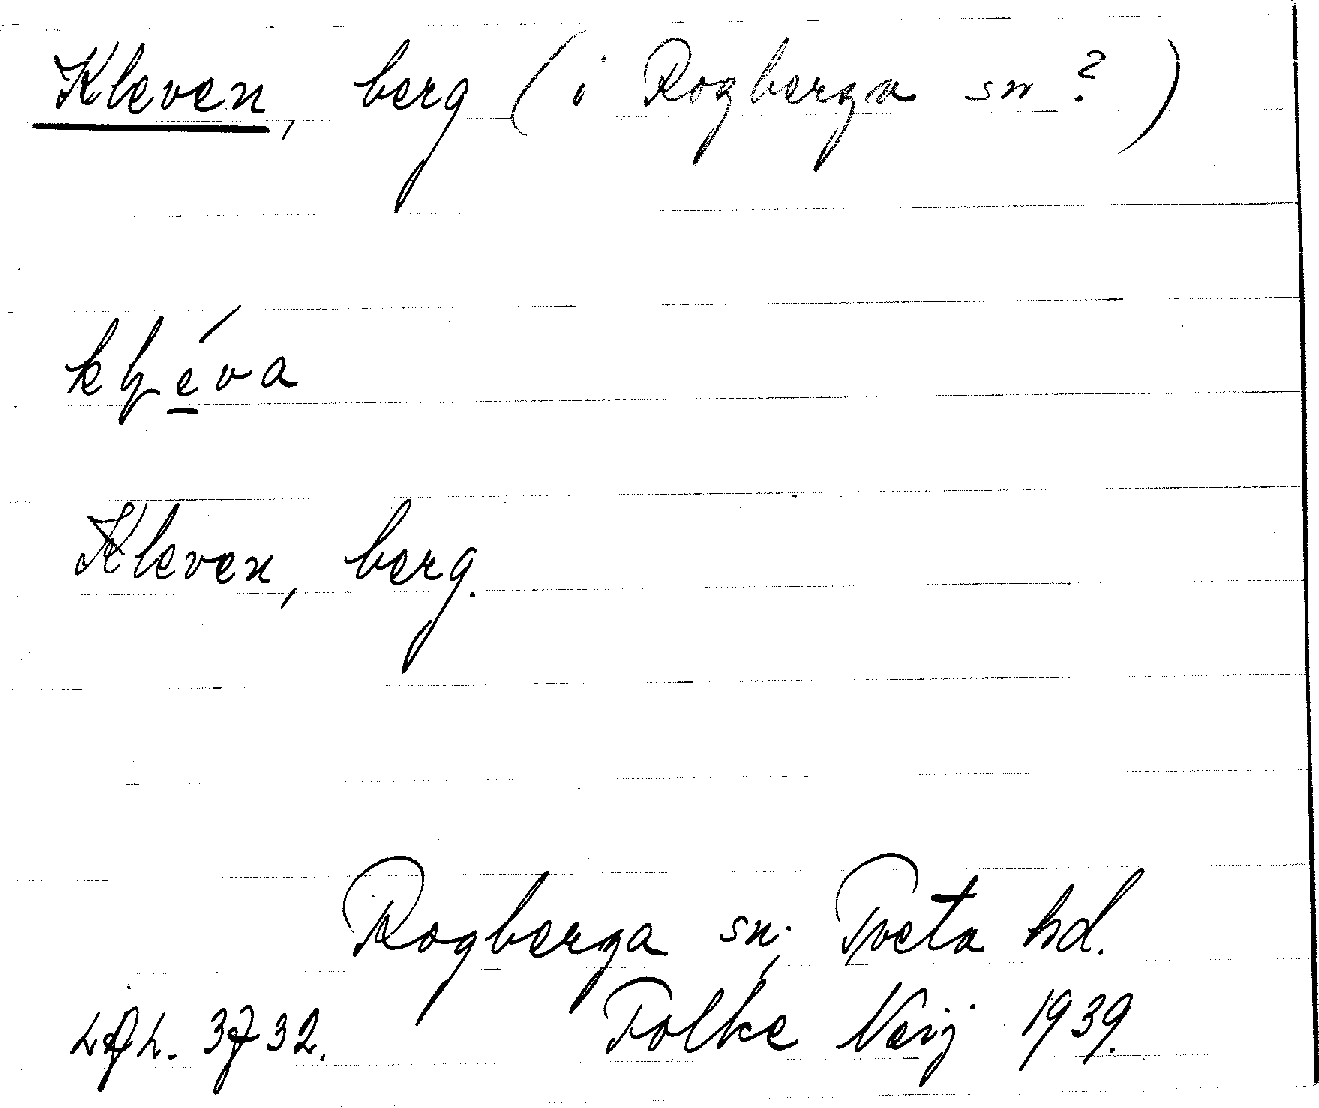 Kleven, berg (i Rogberga sn?)
Kleven, berg.
Rogberga sn; Tveta hd.
Folke Neij 1939.